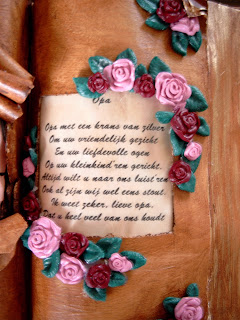 Opa
Opa met een krans van zilver
Om uw vriendelijk gezicht
En uw liefdevolle ogen
Op uw kleinkind'ren gericht.
Altijd wilt u naar ons luist'ren
Ook al zijn wij wel eens stout.
Ik weet zeker, lieve opa,
Dat u heel veel van ons houdt